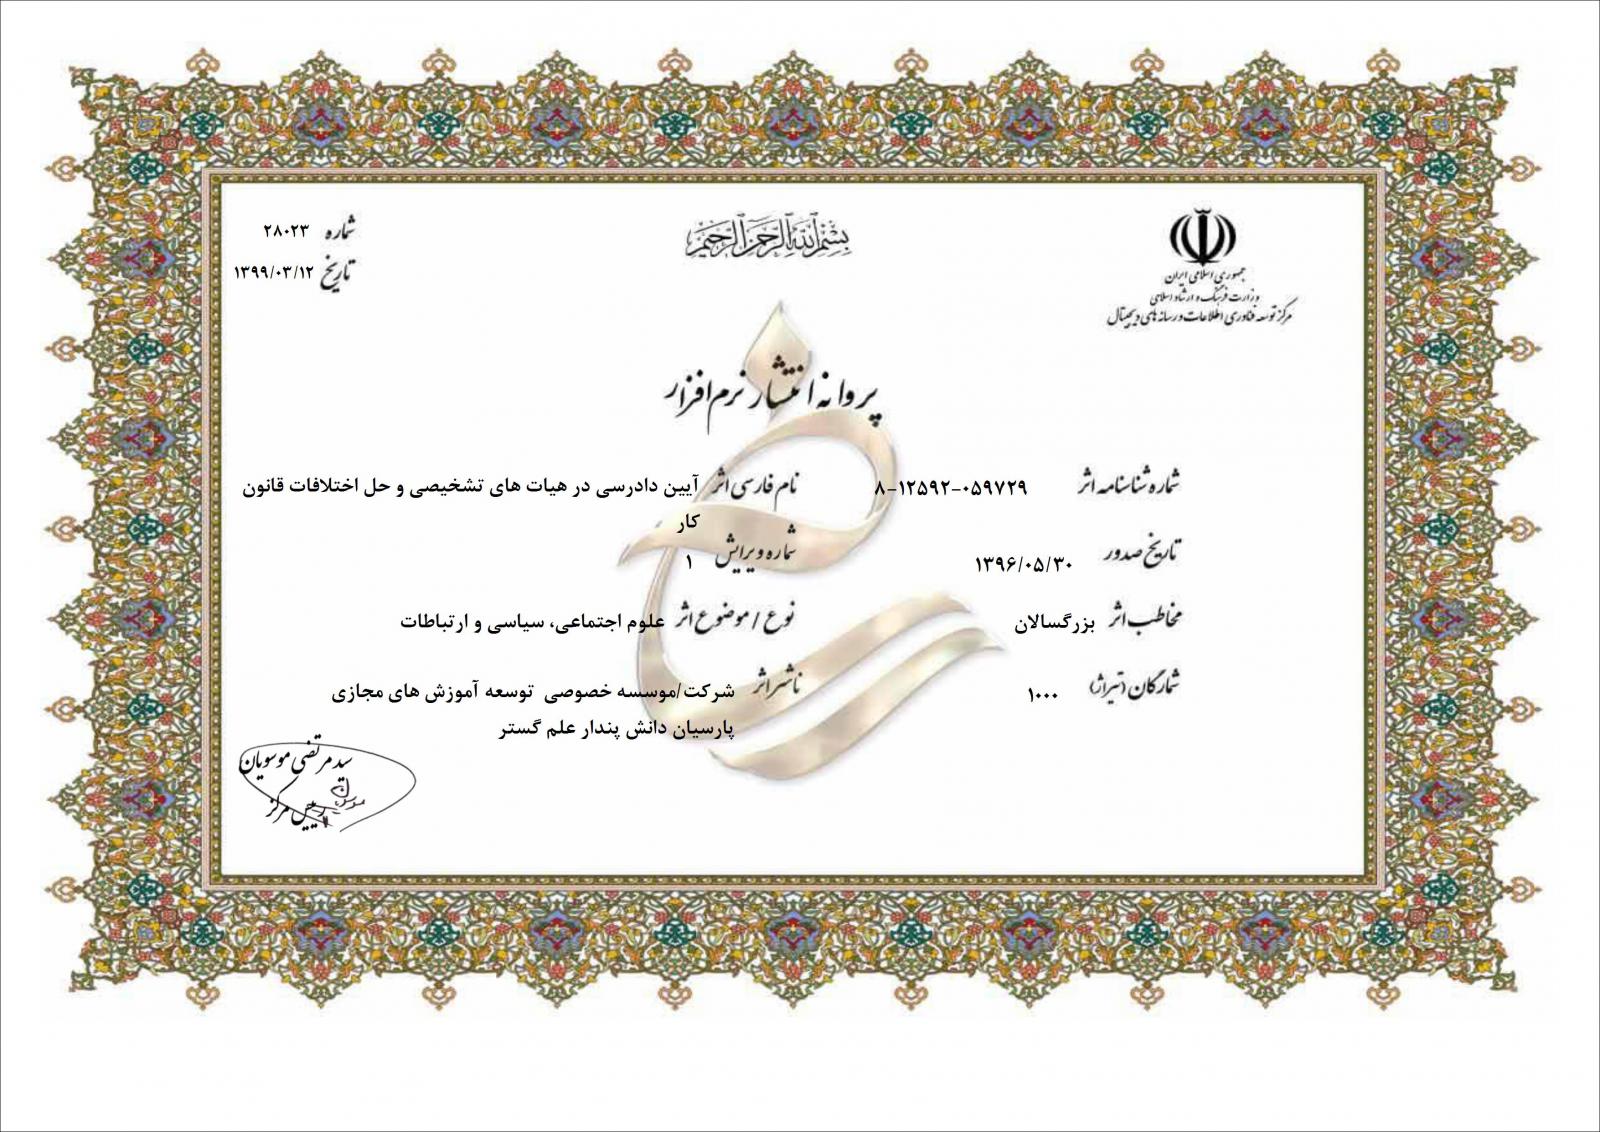 بسم الله الرحمن الرحیم
جمهوری اسلامی ایران
وزارت فرهنگ و ارشاد اسلامی
مرکز توسعه فناوری اطلاعات و رسانه های دیجیتال
شماره ۲۸۰۲۳
تاریخ ۱۳۹۹/۰۳/۱۲
پروانه انتشار نرم افزار
شماره شناسنامه اثر ۸-۱۲۵۹۲-۰۵۹۷۲۹
نام فارسی اثر آیین دادرسی در هیات های تشخیصی و حل اختلافات قانون
کار
تاریخ صدور ۱۳۹۶/۰۵/۳۰
شماره ویرایش ۱
مخاطب اثر بزرگسالان
نوع / موضوع اثر علوم اجتماعی، سیاسی و ارتباطات
شمارگان (تیراژ) ۱۰۰۰
ناشر اثر شرکت/موسسه خصوصی توسعه آموزش های مجازی
پارسیان دانش پندار علم گستر
سید مرتضی موسویان
رییس مرکز